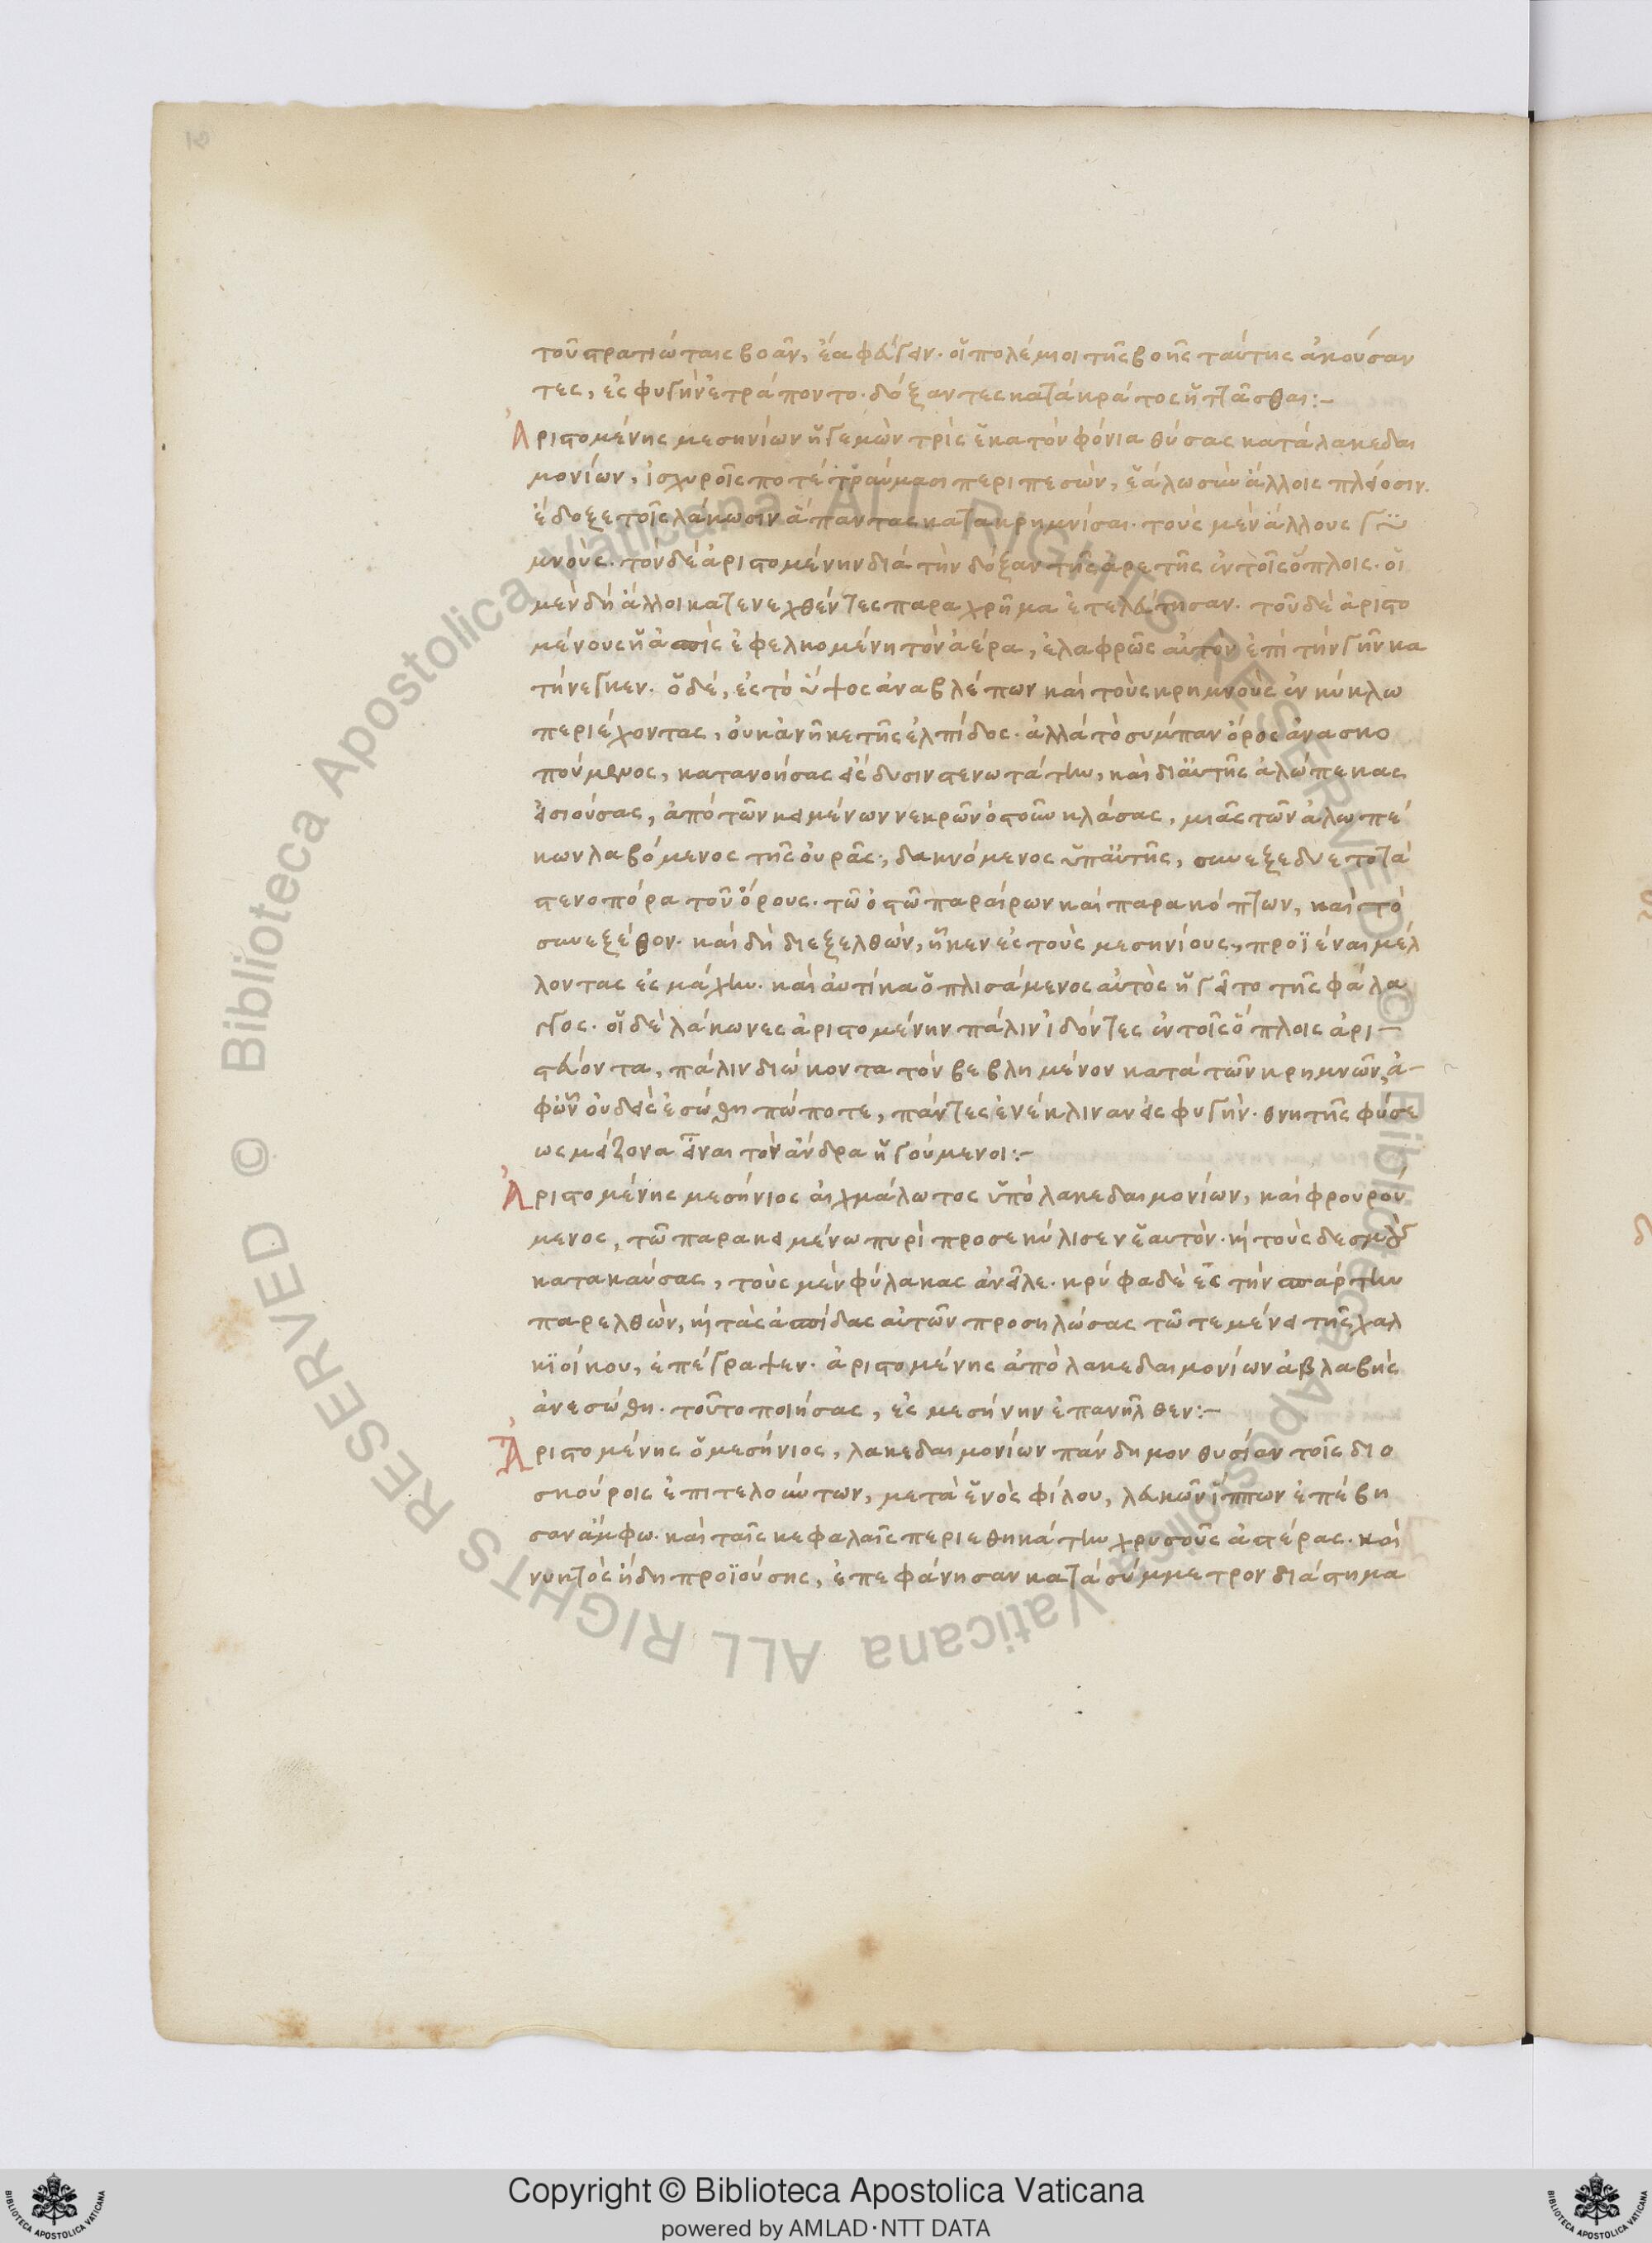 τοῦ στρατιώταις βοᾶν, ἔα φεύγειν. οἱ πολέμιοι τῆς βοῆς ταύτης ἀκούσαν
τες, ἐς φυγὴν ἐτράποντο. δόξαντες κατὰ κράτος ἡττᾶσθαι:–
Ἀριστομένης μεσηνίων ἡγεμὼν τρὶς ἑκατονφόνια θύσας κατὰ λακεδαι
μονίων, ἰσχυροῖς ποτὲ τραύμασι περιπεσὼν, ἑάλω σὺν ἄλλοις πλείοσιν.
ἔδοξε τοῖς λάκωσιν ἅπαντας κατακρημνίσαι. τοὺς μὲν ἄλλους γυ
μνούς. τὸν δὲ ἀριστομένην διὰ τὴν δόξαν τῆς ἀρετῆς ἐν τοῖς ὅπλοις. οἱ
μὲν δὴ ἄλλοι κατενεχθέντες παραχρῆμα ἐτελεύτησαν. τοῦ δὲ ἀριστο
μένους ἡ ἀσπὶς ἐφελκομένη τὸν ἀέρα, ἐλαφρῶς αὐτὸν ἐπὶ τὴν γῆν κα
τήνεγκεν. ὁ δὲ, ἐς τὸ ὕψος ἀναβλέπων καὶ τοὺς κρημνοὺς ἐν κύκλω
περιέχοντας, οὐκ ἀνῆκε τῆς ἐλπίδος. ἀλλὰ τὸ σύμπαν ὄρος ἀνασκο
πούμενος, κατανοήσας εἴσδυσιν στενωτάτην, καὶ δι' αὐτῆς ἀλώπεκας
εἰσιούσας, ἀπὸ τῶν κειμένων νεκρῶν ὀστοῦν κλάσας, μιᾶς τῶν ἀλωπέ
κων λαβόμενος τῆς οὐρᾶς, δακνόμενος ὑπ' αὐτῆς, συνεξεδύετο τὰ
στενοπόρα τοῦ ὄρους. τῶ ὀστῶ παραίρων καὶ παρακόπτων, καὶ τὸ
συνεξέθον. καὶ δὴ διεξελθὼν, ἧκεν ἐς τοὺς μεσηνίους, προϊέναι μέλ
λοντας ἐς μάχην. καὶ αὐτίκα ὁπλισάμενος αὐτὸς ἡγεῖτο τῆς φάλα
γγος. οἱ δὲ λάκωνες ἀριστομένην πάλιν ἰδόντες ἐν τοῖς ὅπλοις ἀρι–
στεύοντα, πάλιν διώκοντα τὸν βεβλημένον κατὰ τῶν κρημνῶν, ἀ–
φ' ὧν οὐδεὶς ἐσώθη πώποτε, πάντες ἐνέκλιναν εἰς φυγὴν. θνητῆς φύσε
ως μείζονα εἶναι τὸν ἄνδρα ἡγούμενοι:–
Ἀριστομένης μεσήνιος αἰχμάλωτος ὑπὸ λακεδαιμονίων, καὶ φρουρού
μενος, τῶ παρακειμένω πυρὶ προσεκύλισεν ἑαυτὸν. καὶ τοὺς δεσμοὺς
κατακαύσας, τοὺς μὲν φύλακας ἀνεῖλε. κρύφα δὲ εἰς τὴν σπάρτην
παρελθὼν, καὶ τὰς ἀσπίδας αὐτῶν προσηλώσας τῶ τεμένει τῆς χαλ
κιοίκου, ἐπέγραψεν. ἀριστομένης ἀπὸ λακεδαιμονίων ἀβλαβὴς
ἀνεσώθη. τοῦτο ποιήσας, ἐς μεσήνην ἐπανῆλθεν:–
Ἀριστομένης ὁ μεσήνιος, λακεδαιμονίων πάνδημον θυσίαν τοῖς διο
σκούροις ἐπιτελούντων, μετὰ ἑνὸς φίλου, λευκῶν ἵππων ἐπέβη
σαν ἄμφω. καὶ ταῖς κεφαλαῖς περιεθηκάτην χρυσοῦς ἀστέρας. καὶ
νυκτὸς ἤδη προϊούσης, ἐπεφάνησαν κατὰ σύμμετρον διάστημα
Copyright © Biblioteca Apostolica Vaticana
powered by AMLAD·NTT DATA